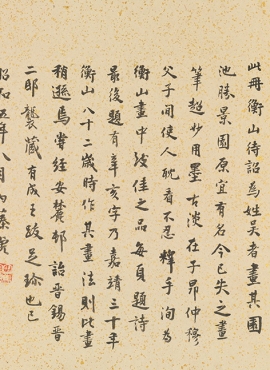 此冊衡山待詔為姓吴者畫其園
池勝景園原宜有名今已失之畫
筆超妙用墨古淡在子昂仲穆
父子間使人耽看不忍釋手洵為
衡山畫中佳之品每頁題詩
最後題有辛亥字乃嘉靖三十年
衡山八十二歲時作其畫法則此畫
稍遜焉嘗經安麓邨詒晉錫晉
二邸襲藏有成王跋足珎也已
昭和五年八月内藤虎